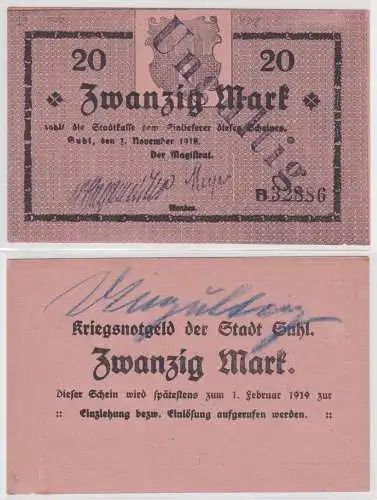 20
20
Ungültig
Zwanzig Mark
zahlt die Stadtkasse dem Einlieferer dieses Scheines.
Suhl, den 1. November 1918.
Der Magistrat.
B 32886
Ungültig
Kriegsnotgeld der Stadt Suhl.
Zwanzig Mark.
Dieser Schein wird spätestens zum 1. Februar 1919 zur
:: Einziehung bezw. Einlösung aufgerufen werden. ::